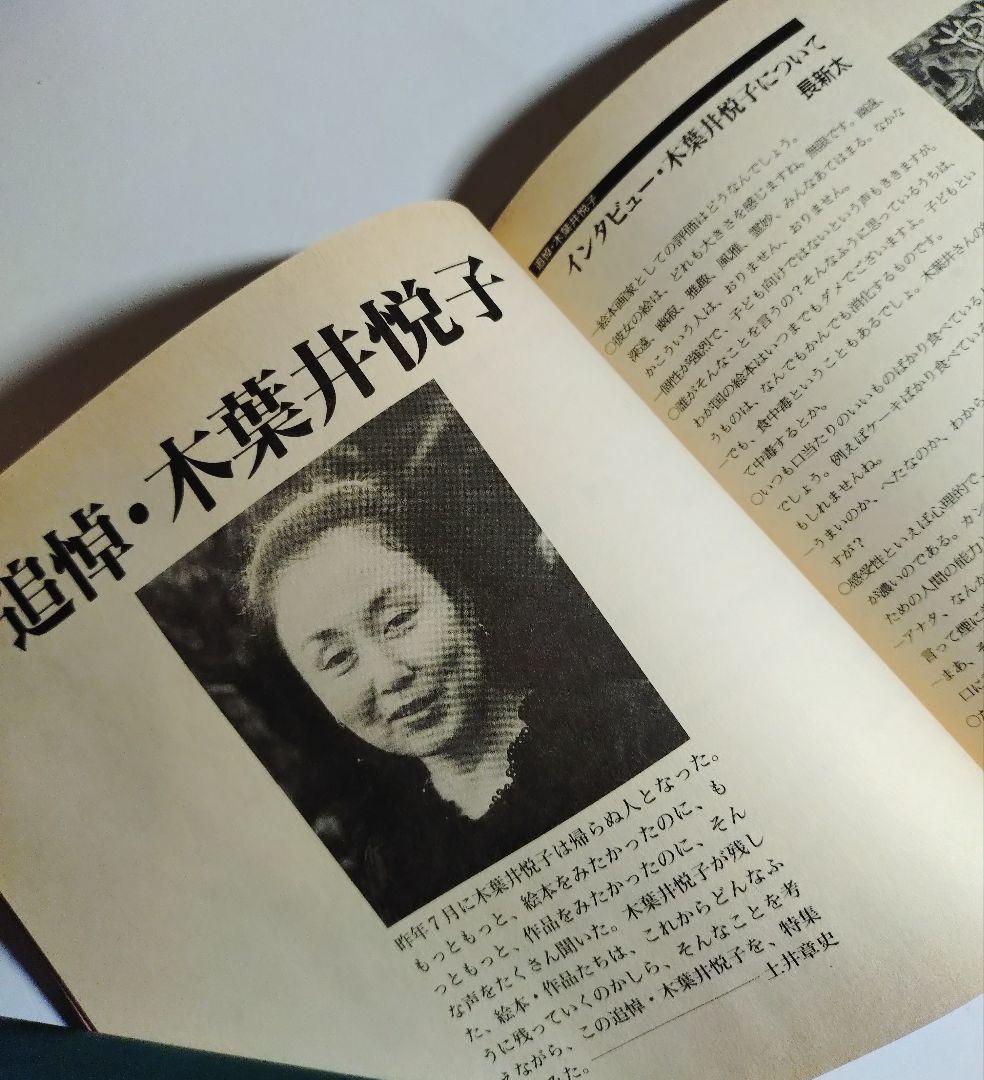 追悼・木葉井悦子
昨年7月に木葉井悦子は帰らぬ人となった。
もっともっと、絵本をみたかったのに、も
っともっと、作品をみたかったのに、そん
な声をたくさん聞いた。木葉井悦子が残し
た、絵本・作品たちは、これからどんなふ
うに残っていくのかしら、そんなことを考
えながら、この追悼・木葉井悦子を、特集
みた。
土井章史
追悼・木葉井悦子
インタビュー・木葉井悦子について
長新太
―絵本画家としての評価はどうなんでしょう。
○彼女の絵は、どれも大きさを感じますね。無限です。幽遠、
深遠、幽寂、雅趣、風雅、霊妙、みんなあてはまる。なかな
かこういう人は、おりません、おりません。
―個性が強烈で、子ども向けではないという声もききますが。
○誰がそんなことを言うの？そんなふうに思っているうちは、
わが国の絵本はいつまでもダメでございますよ。子どもとい
うものは、なんでもかんでも消化するものです。
―でも、食中毒ということもあるでしょ。木葉井さんの
て中毒するとか。
○いつも口当たりのいいものばかり食べていると
でしょう。例えばケーキばかり食べてい
もしれませんね。
―うまいのか、へたなのか、わから
すが？
○感受性といえば心理的で、
が濃いのである。カン
ための人間の能力
―アナタ、なんか
言って煙に
―まあ、そ
口に